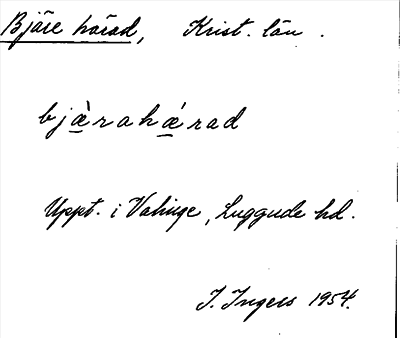 Bjäre härad, Krist. län.
bjæ̀rahǽrad
Uppt. i Välinge, Luggude hd.
I. Ingers 1954.